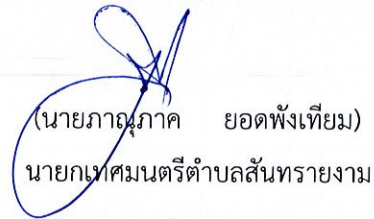 (นายภาณุภาค ยอดพังเทียม)
นายกเทศมนตรีตำบลสันทรายงาม